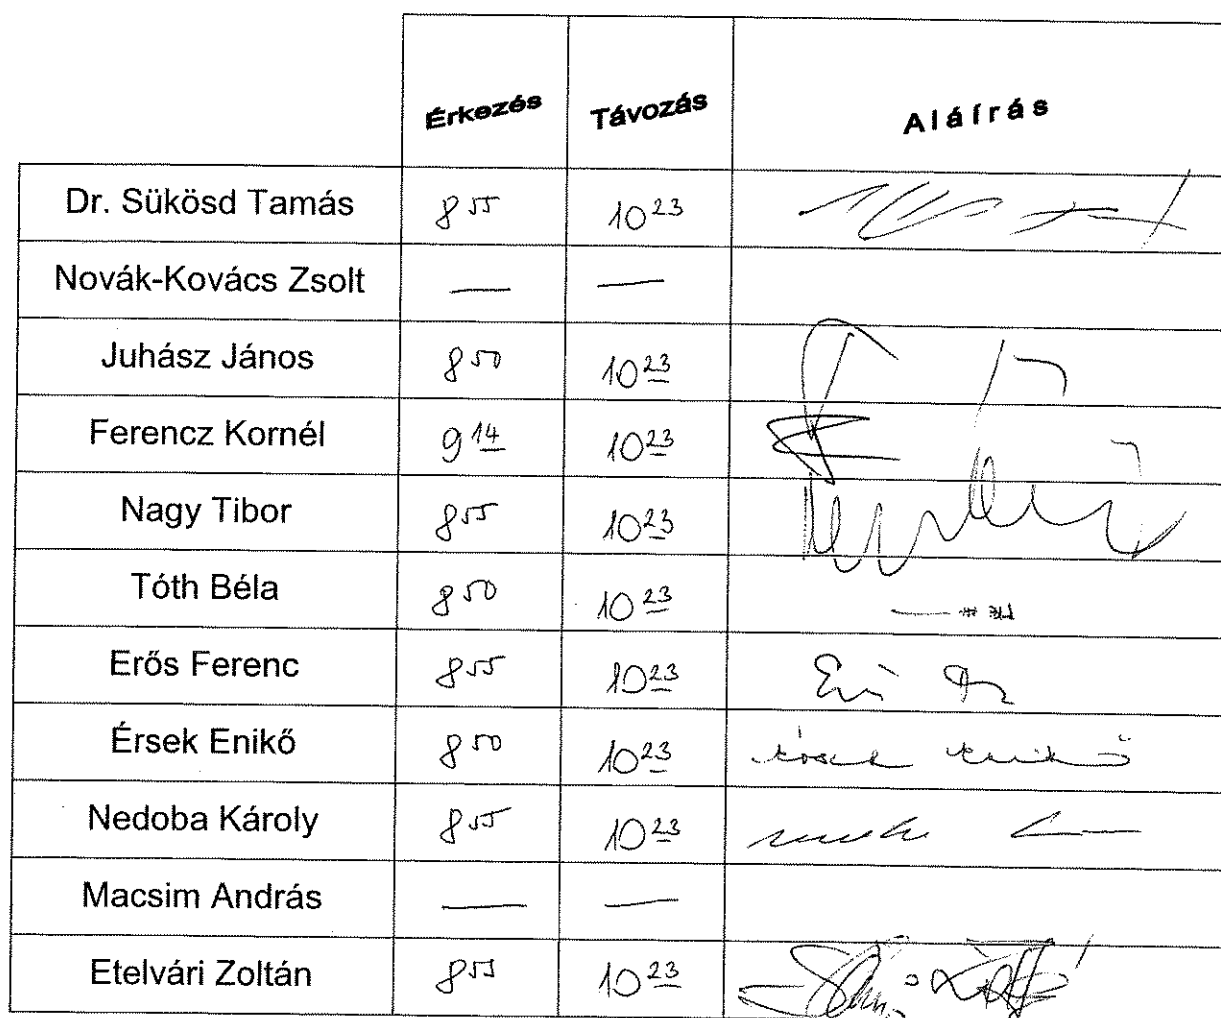 Érkezés Távozás Aláírás
Dr. Sükösd Tamás 8 55 10 23
Novák-Kovács Zsolt — —
Juhász János 8 50 10 23
Ferencz Kornél 9 14 10 23
Nagy Tibor 8 55 10 23
Tóth Béla 8 50 10 23
Erős Ferenc 8 55 10 23
Érsek Enikő 8 50 10 23 Érsek Enikő
Nedoba Károly 8 55 10 23
Macsim András — —
Etelvári Zoltán 10 23